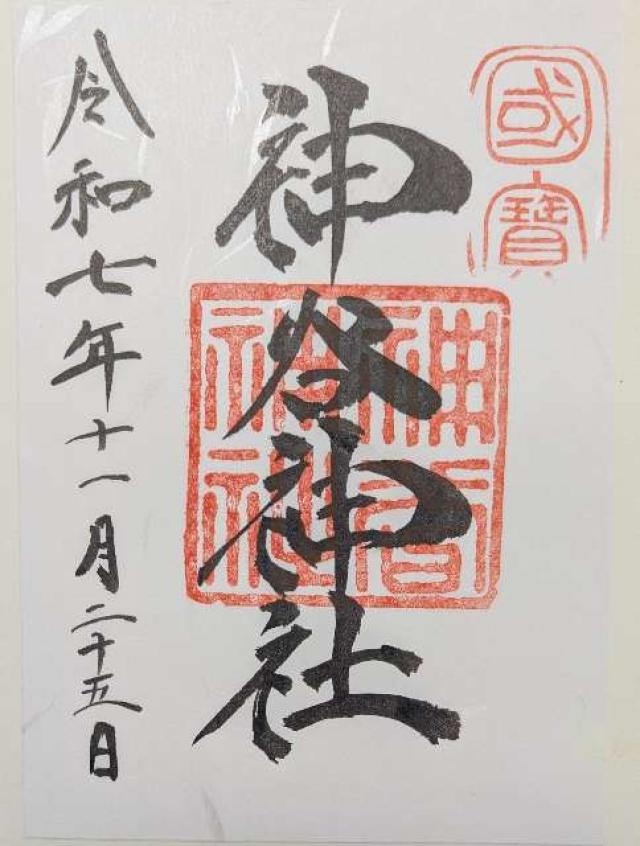 國寶
神谷神社
神谷神社
令和七年十一月二十五日